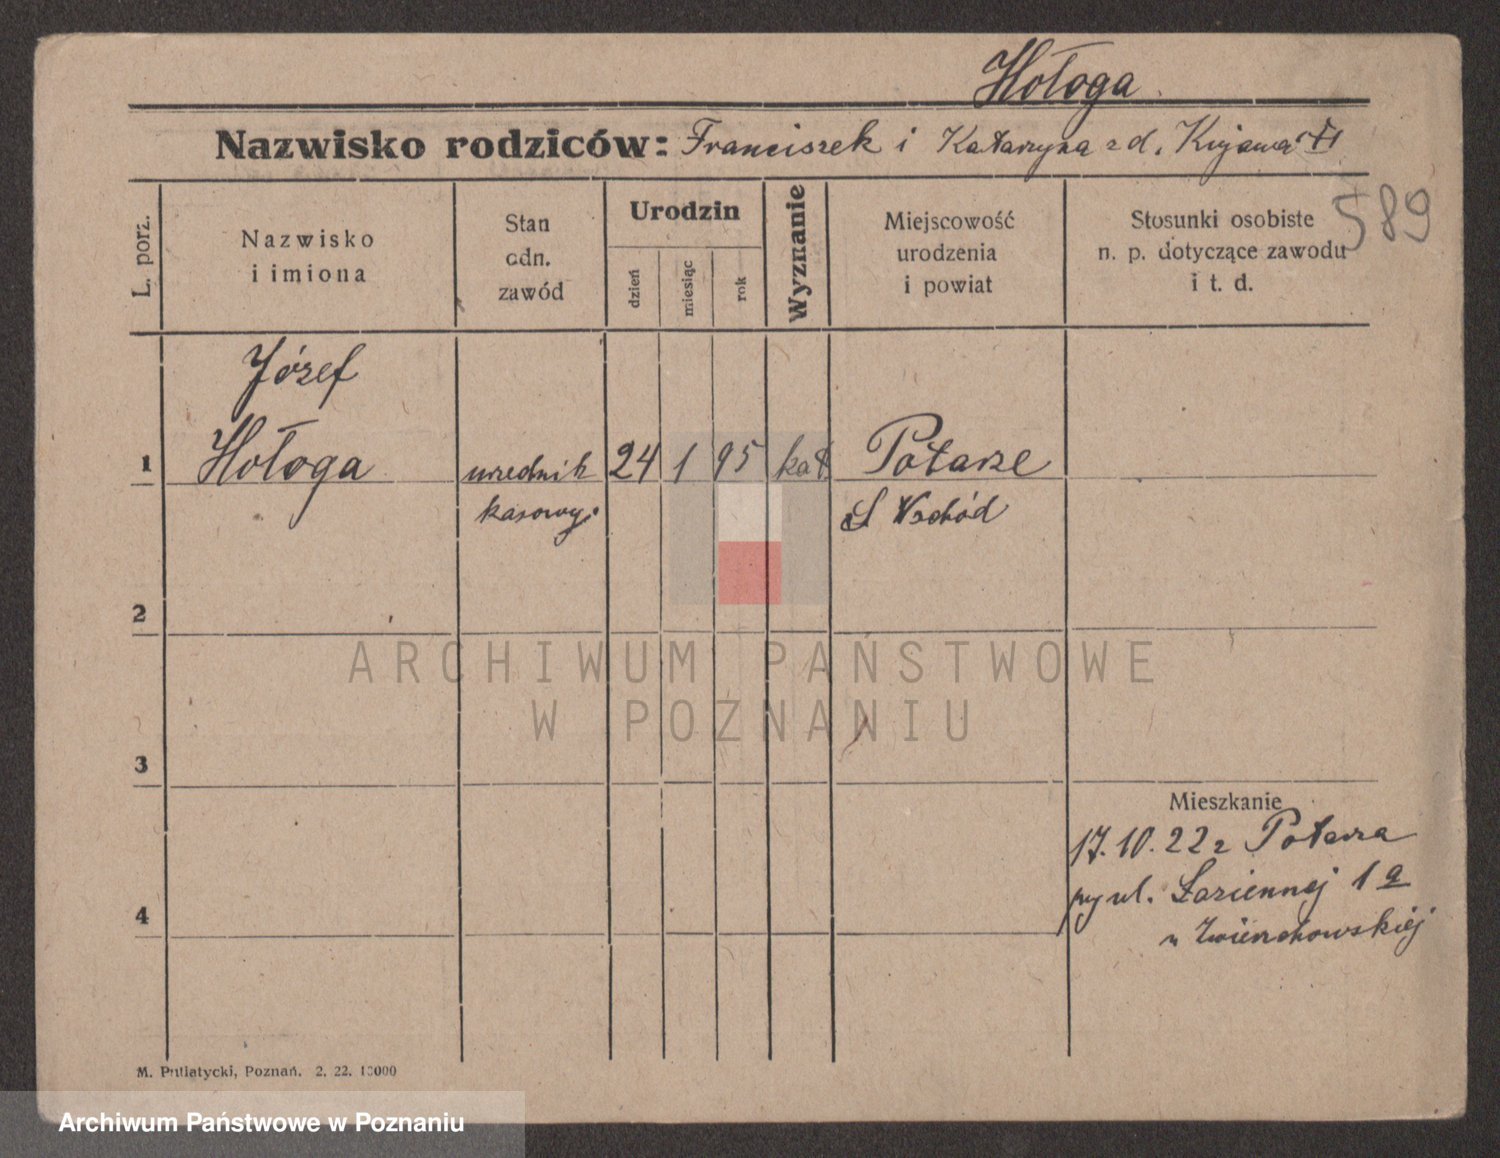 Hołoga
Nazwisko rodziców: Franciszek i Katarzyna z d. Kujawa
589
L. porz.
Nazwisko
i imiona
Stan
odn.
zawód
Urodzin
dzień
miesiąc
rok
Wyznanie
Miejscowość
urodzenia
i powiat
Stosunki osobiste
n. p. dotyczące zawodu
i t. d.
Józef
1 Hołoga urzednik 24 1 95 kat. Potarze
kasowy. Wschód
2
3
4
Mieszkanie
17.10.22 z Potarza
ul. Łaziennej 1a
u Zwierzchowskiej
M. Putiatycki, Poznań. 2. 22. 10000
ARCHIWUM PAŃSTWOWE
W POZNANIU
Archiwum Państwowe w Poznaniu